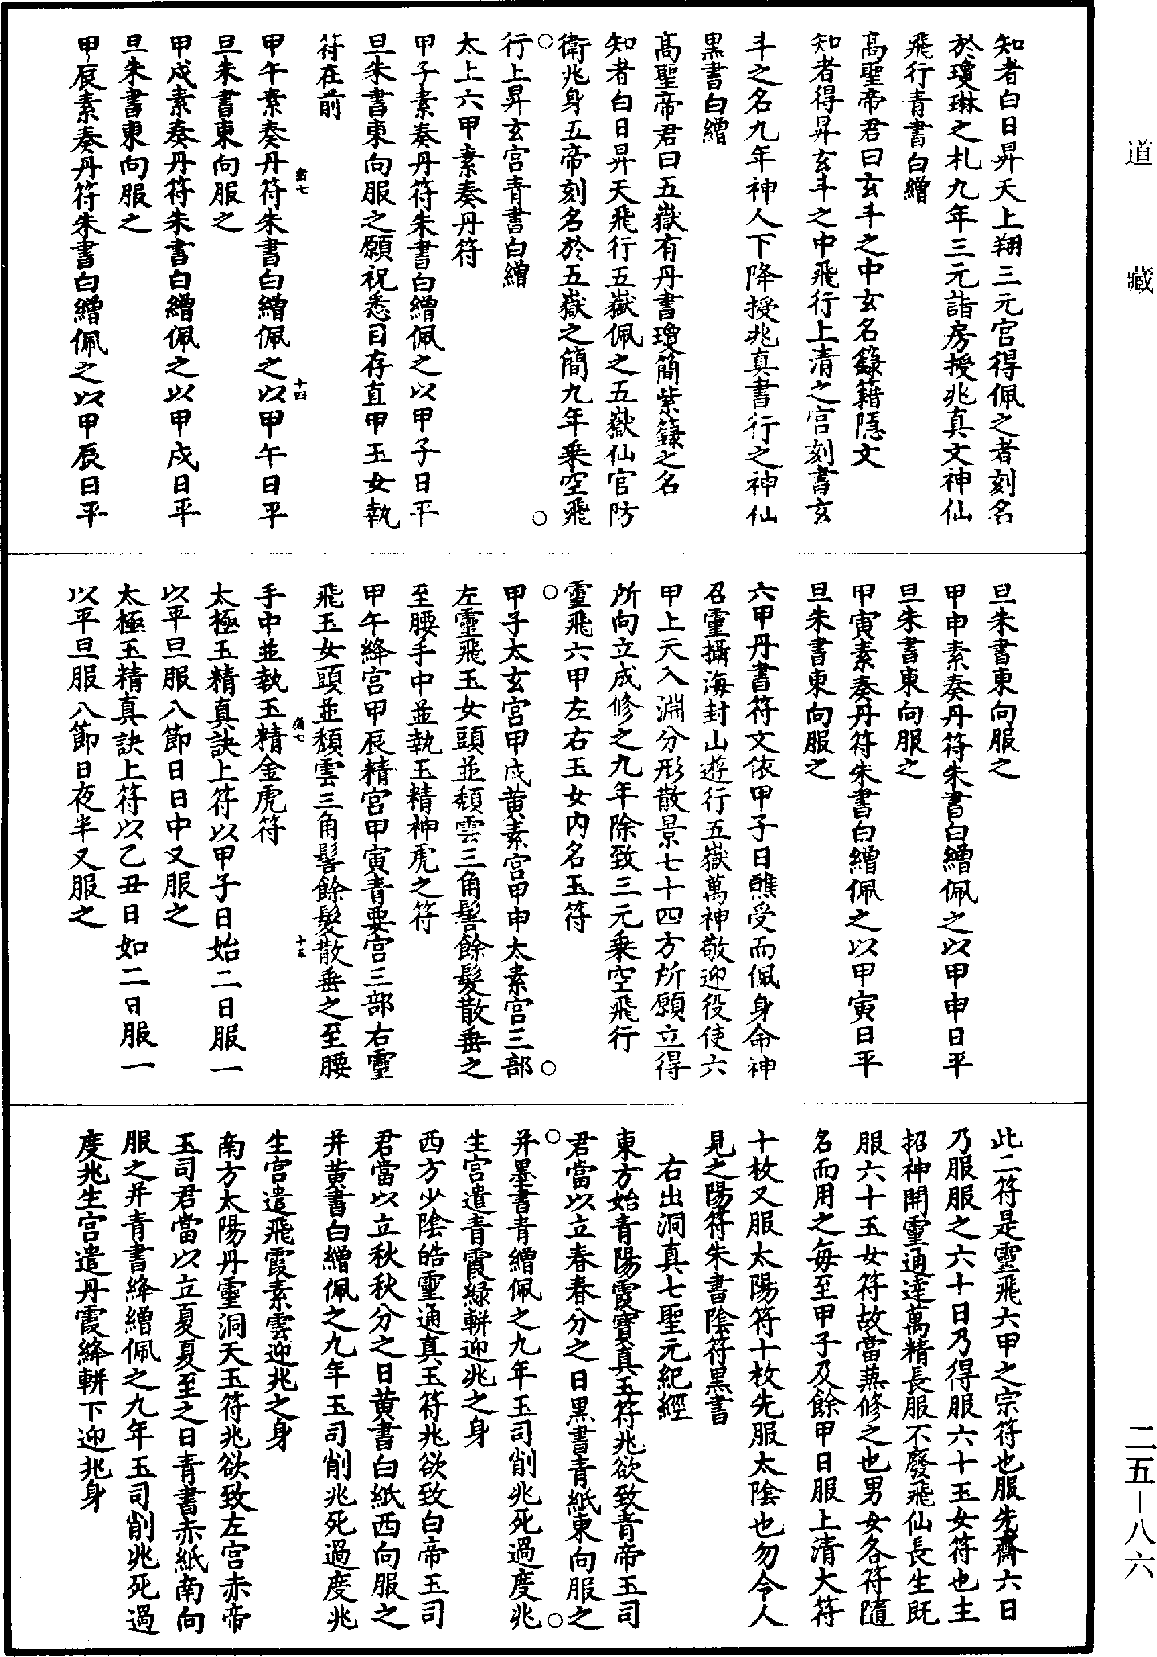 道藏
知者白日昇天上翔三元宮得佩之者刻名
於瓊琳之札九年三元詣房授兆真文神仙
飛行青書白繒
高聖帝君曰玄斗之中玄名籙籍隱文
知者得昇玄斗之中飛行上清之宮刻書玄
斗之名九年神人下降授兆真書行之神仙
黑書白繒
高聖帝君曰五嶽有丹書瓊簡紫籙之名
知者白日昇天飛行五嶽佩之五嶽仙官防
衛兆身五帝刻名於五嶽之簡九年乘空飛
行上昇玄宮青書白繒
太上六甲素奏丹符
甲子素奏丹符朱書白繒佩之以甲子日平
旦朱書東向服之願祝悉自存直甲玉女執
符在前
甲午素奏丹符朱書白繒佩之以甲午日平
旦朱書東向服之
甲戌素奏丹符朱書白繒佩之以甲戌日平
旦朱書東向服之
甲辰素奏丹符朱書白繒佩之以甲辰日平
旦朱書東向服之
甲申素奏丹符朱書白繒佩之以甲申日平
旦朱書東向服之
甲寅素奏丹符朱書白繒佩之以甲寅日平
旦朱書東向服之
六甲丹書符文依甲子日醮受而佩身命神
召靈攝海封山遊行五嶽萬神敬迎役使六
甲上天入淵分形散景七十四方所願立得
所向立成修之九年除致三元乘空飛行
靈飛六甲左右玉女內名玉符
甲子太玄宮甲戌黃素宮甲申太素宮三部
左靈飛玉女頭並頹雲三角髻餘髮散垂之
至腰手中並執玉精神虎之符
甲午絳宮甲辰精宮甲寅青要宮三部右靈
飛玉女頭並頹雲三角髻餘髮散垂之至腰
手中並執玉精金虎符
太極玉精真訣上符以甲子日始二日服一
以平旦服八節日日中又服之
太極玉精真訣上符以乙丑日如二日服一
以平旦服八節日夜半又服之
此二符是靈飛六甲之宗符也服先齋六日
乃服服之六十日乃得服六十玉女符也主
招神開靈通達萬精長服不廢飛仙長生既
服六十玉女符故當兼修之也男女各符隨
名而用之每至甲子及餘甲日服上清大符
十枚又服太陽符十枚先服太陰也勿令人
見之陽符朱書陰符黑書
右出洞真七聖元紀經
東方始青陽霞寶真玉符兆欲致青帝玉司
君當以立春春分之日黑書青紙東向服之
并墨書青繒佩之九年玉司削兆死過度兆
生宮遣青霞綠軿迎兆之身
西方少陰皓靈通真玉符兆欲致白帝玉司
君當以立秋秋分之日黃書白紙西向服之
并黃書白繒佩之九年玉司削兆死過度兆
生宮遣飛霞素雲迎兆之身
南方太陽丹靈洞天玉符兆欲致左宮赤帝
玉司君當以立夏夏至之日青書赤紙南向
服之并青書絳繒佩之九年玉司削兆死過
度兆生宮遣丹霞絳軿下迎兆身
二五—八六